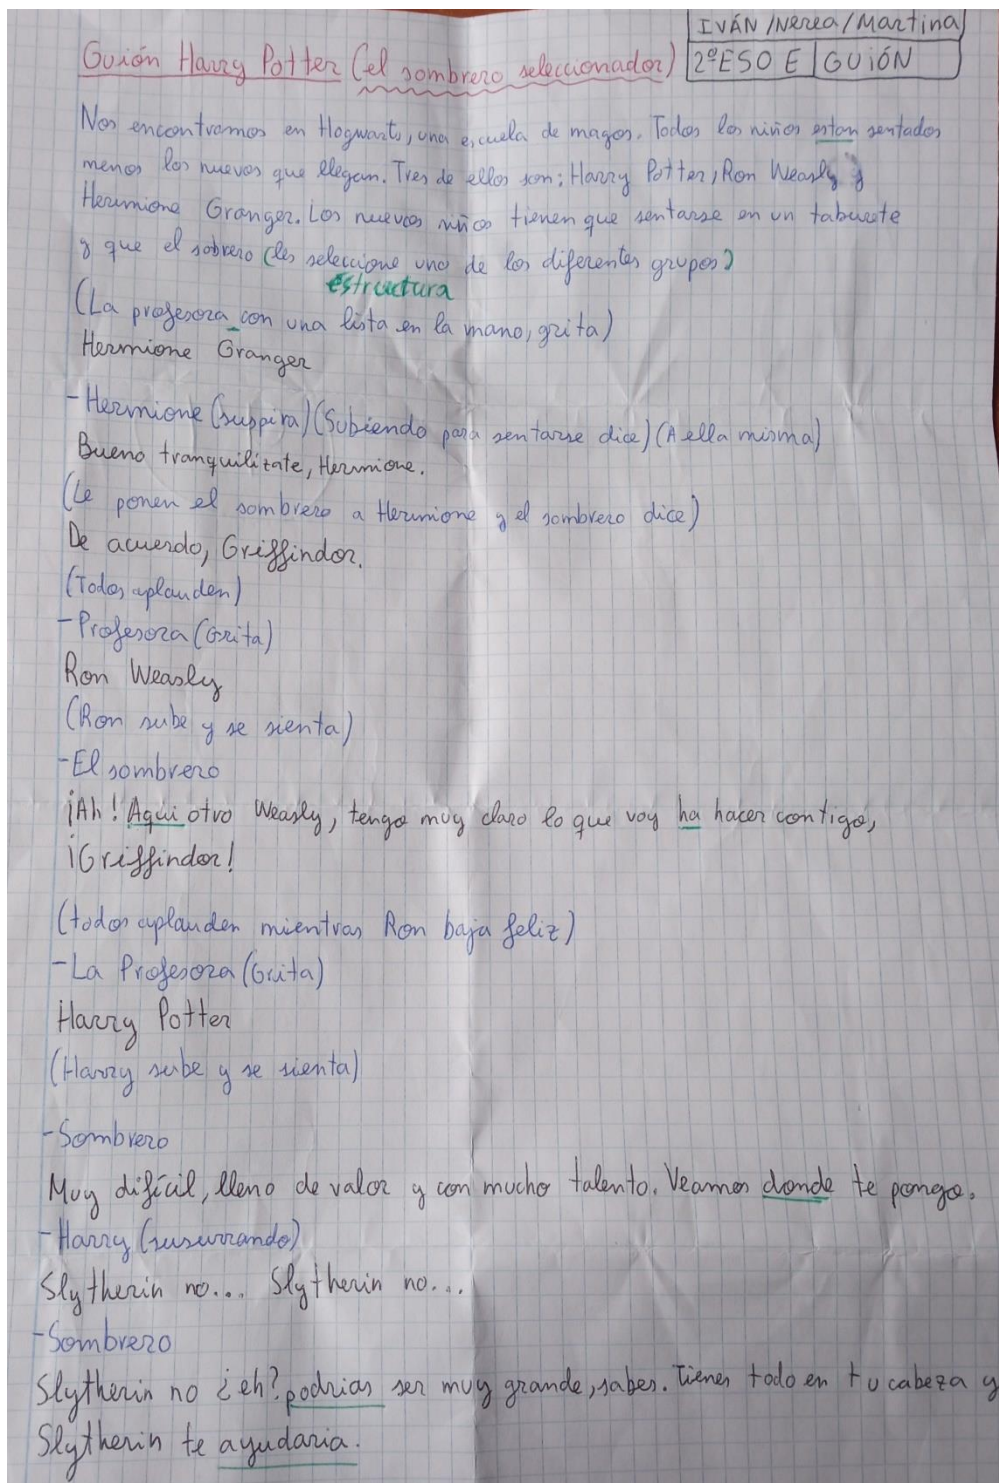 IVÁN/Nerea/Martina
Guión Harry Potter (el sombrero seleccionador)
2ºESO E GUIÓN
Nos encontramos en Hogwarts, una escuela de magos. Todos los niños estan sentados
menos los nuevos que llegan. Tres de ellos son: Harry Potter, Ron Weasly y
Hermione Granger. Los nuevos niños tienen que sentarse en un taburete
y que el sobrero (les seleccione uno de los diferentes grupos)
estructura
(La profesora con una lista en la mano, grita)
Hermione Granger
-Hermione (suspira) (Subiendo para sentarse dice) (A ella misma)
Bueno tranquilizate, Hermione.
(Le ponen el sombrero a Hermione y el sombrero dice)
De acuerdo, Griffindor.
(Todos aplauden)
-Profesora (Grita)
Ron Weasly
(Ron sube y se sienta)
-El sombrero
¡Ah! Aqui otro Weasly, tengo muy claro lo que voy ha hacer contigo,
¡Griffindor!
(todos aplauden mientras Ron baja feliz)
-La Profesora (Grita)
Harry Potter
(Harry sube y se sienta)
-Sombrero
Muy difícil, lleno de valor y con mucho talento. Veamos donde te pongo.
-Harry (susurrando)
Slytherin no... Slytherin no...
-Sombrero
Slytherin no ¿eh? podrias ser muy grande, sabes. Tienes todo en tu cabeza y
Slytherin te ayudaria.